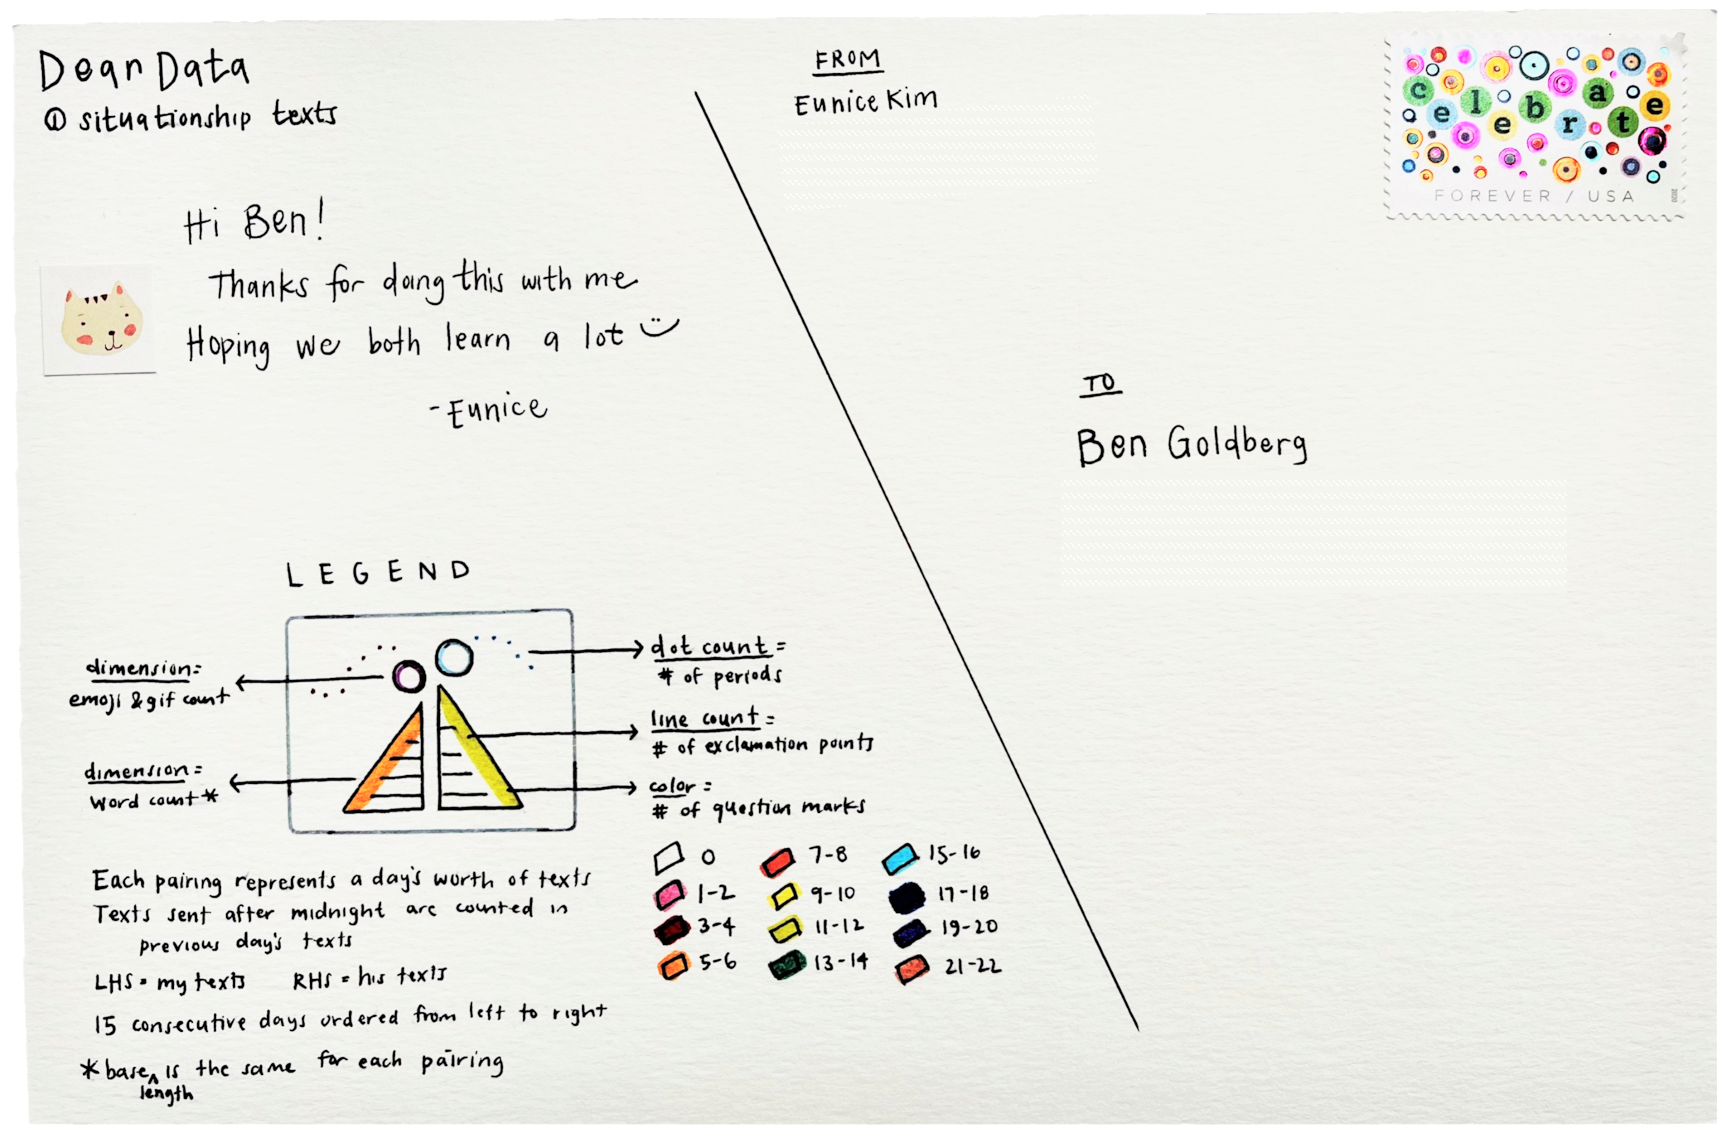 Dear Data
① situationship texts
Hi Ben!
Thanks for doing this with me
Hoping we both learn a lot
-Eunice
FROM
Eunice Kim
celebrate
FOREVER / USA
2020
TO
Ben Goldberg
LEGEND
dimension=
emoji & gif count
dimension=
word count*
dot count=
# of periods
line count=
# of exclamation points
color=
# of question marks
0
7-8
15-16
1-2
9-10
17-18
3-4
11-12
19-20
5-6
13-14
21-22
Each pairing represents a day's worth of texts
Texts sent after midnight are counted in
previous day's texts
LHS = my texts RHS = his texts
15 consecutive days ordered from left to right
*base length is the same for each pairing